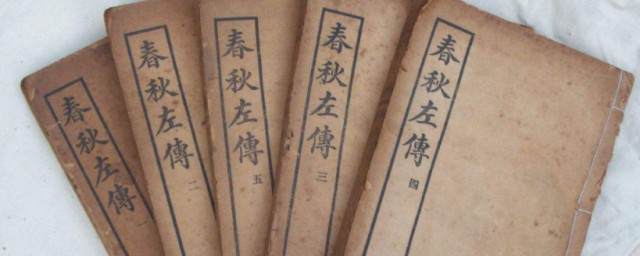 春秋左傳
春秋左傳
二
春秋左傳
五
春秋左傳
三
春秋左傳
四